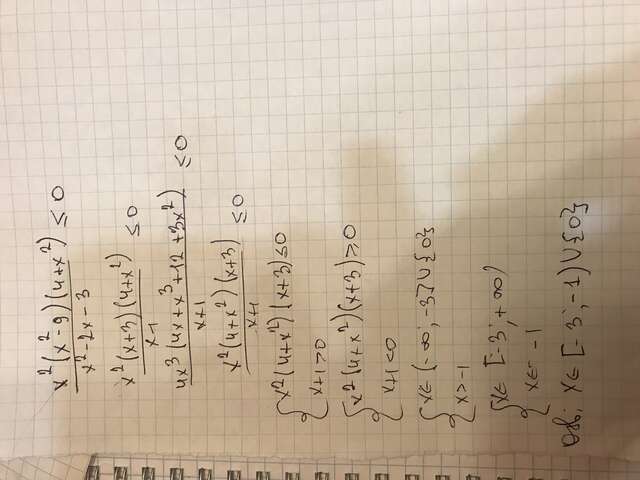 x²(x²-9)(4+x²) / x²-2x-3 ≤ 0
x²(x+3)(4+x²) / x-1 ≤ 0
4x³(4x+x³+12+3x²) / x+1 ≤ 0
x²(4+x²)(x+3) / x+1 ≤ 0
{ x²(4+x²)(x+3)≤0
x+1>0
{ x²(4+x²)(x+3)≥0
x+1<0
{ x∈(-∞;-3]∪{0}
x>-1
{ x∈[-3;+∞)
x∈-1
Отв: x∈[-3;-1)∪{0}